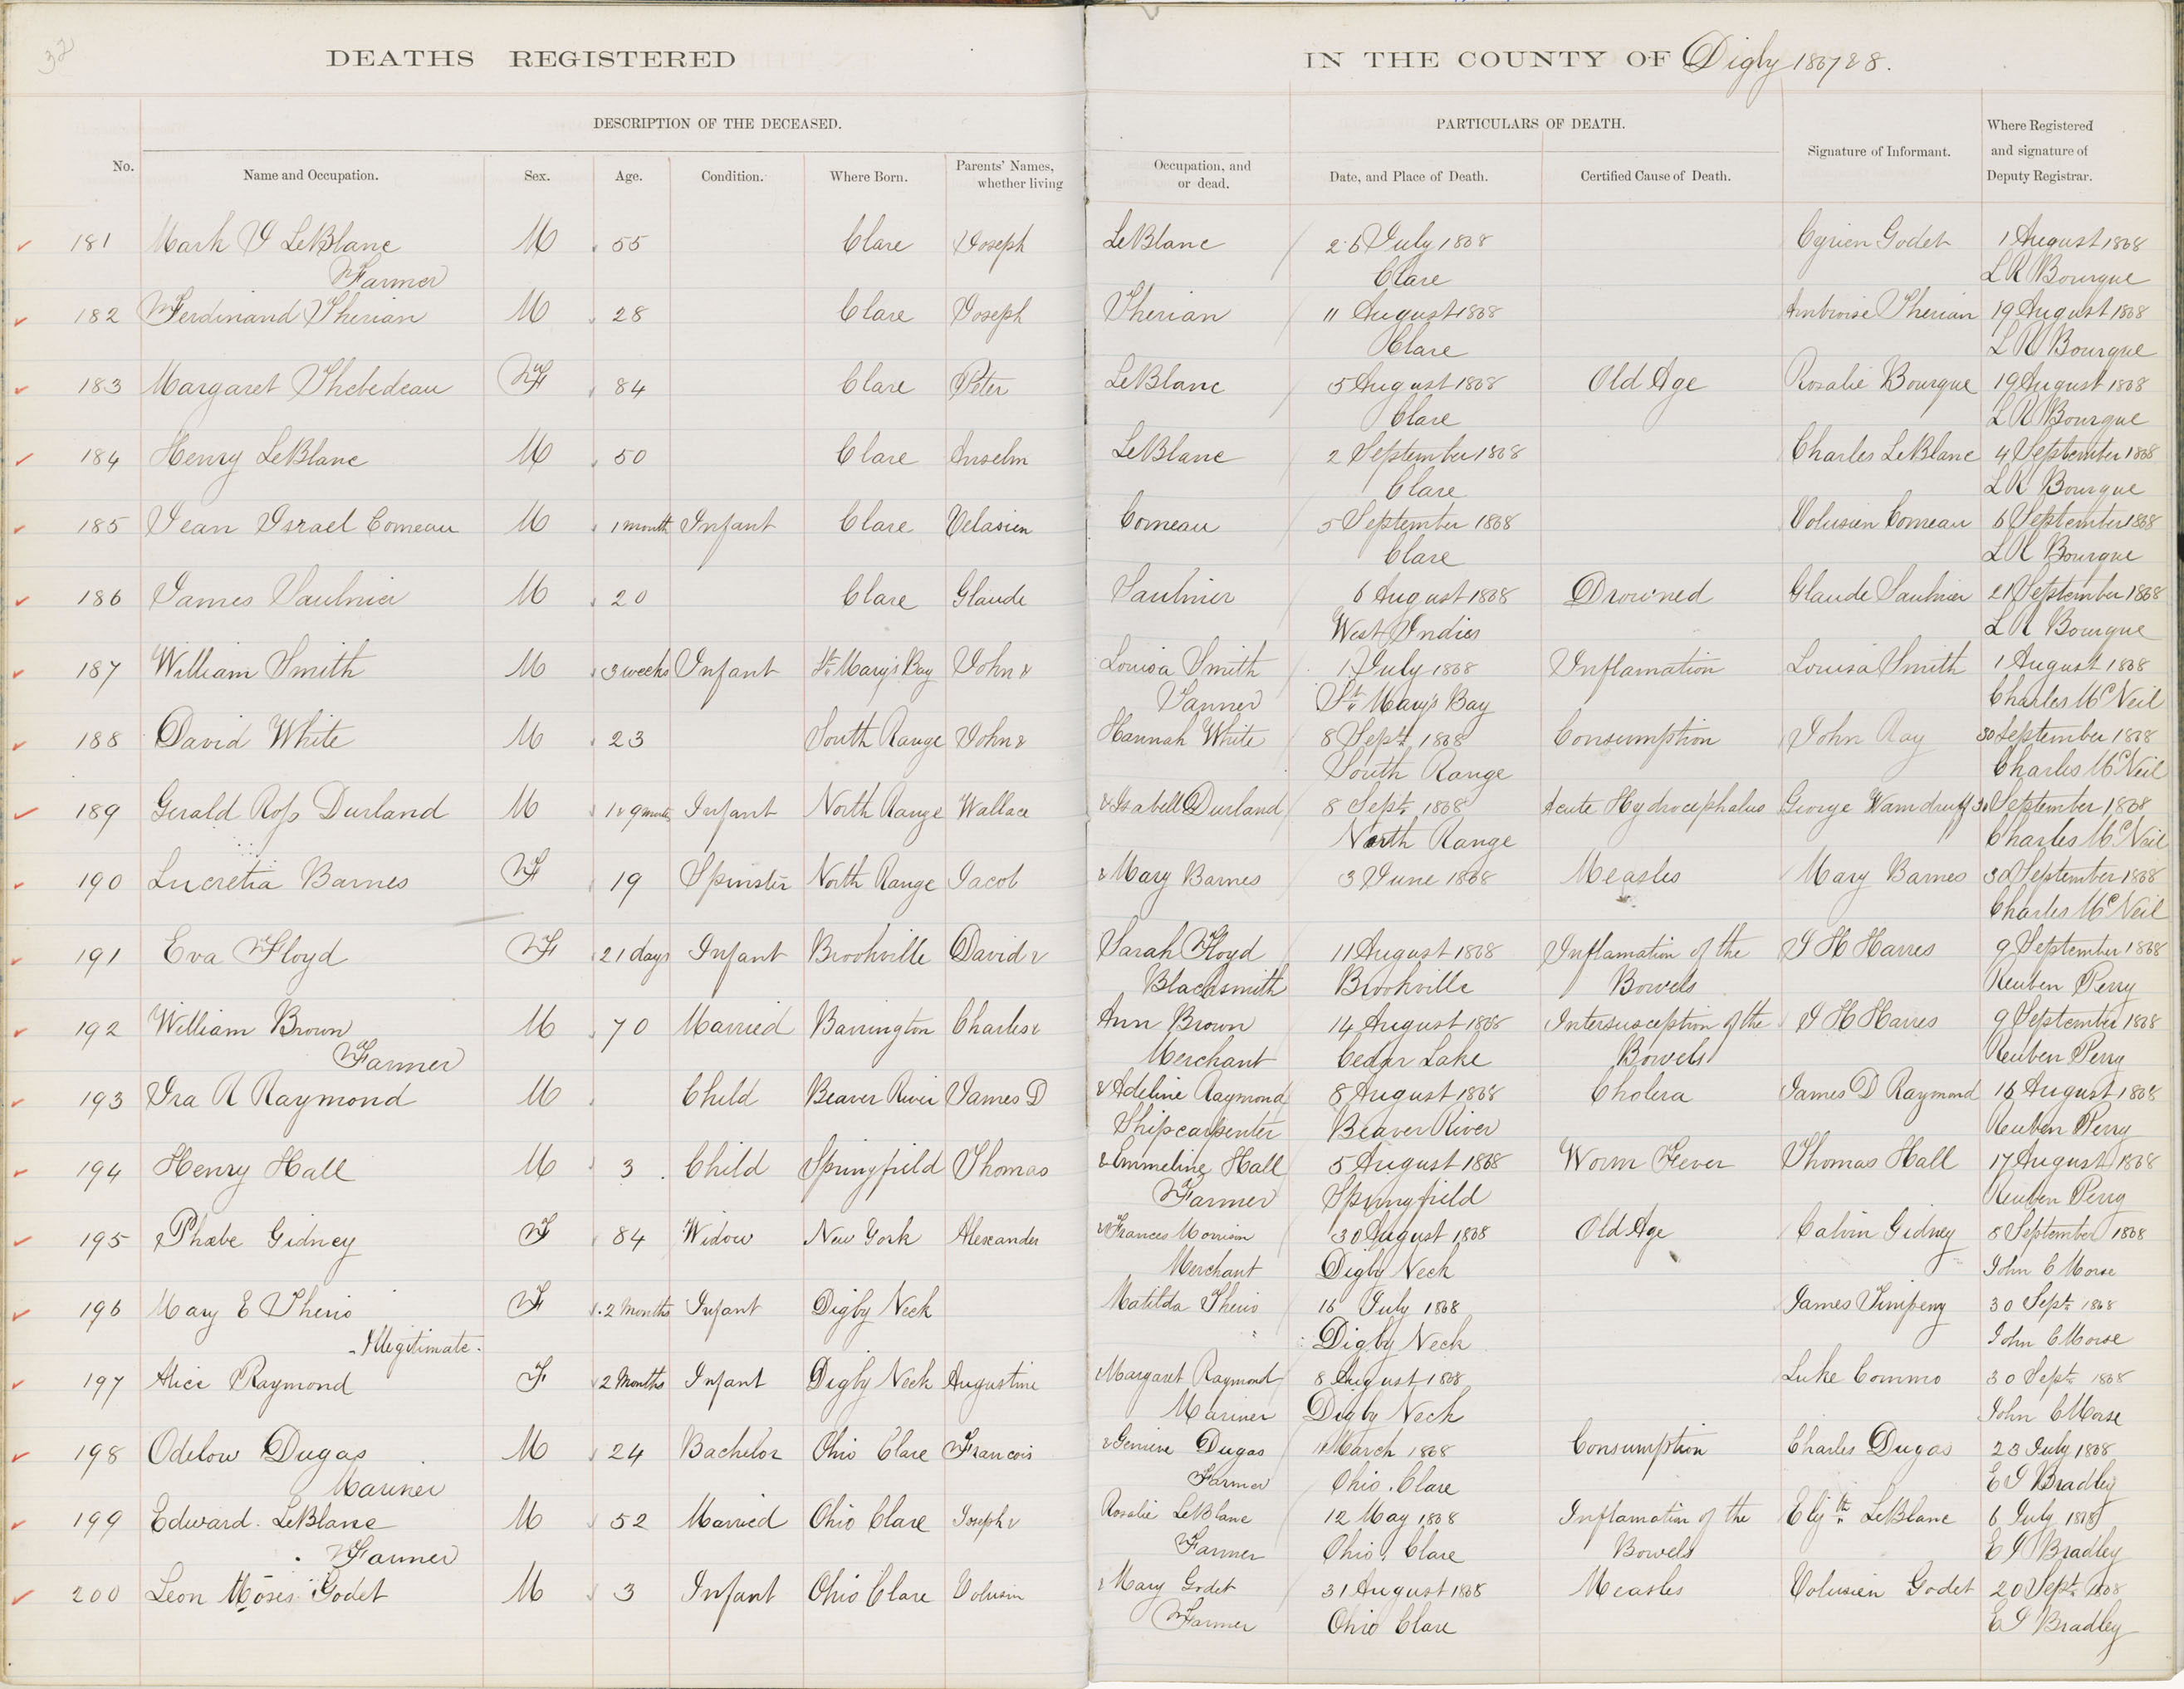 32
DEATHS REGISTERED IN THE COUNTY OF Digby 1867 & 8.
DESCRIPTION OF THE DECEASED. PARTICULARS OF DEATH.
No. Name and Occupation. Sex. Age. Condition. Where Born. Parents' Names, whether living Occupation, and or dead. Date, and Place of Death. Certified Cause of Death. Signature of Informant. Where Registered and signature of Deputy Registrar.
181 Mark J LeBlanc M 55 Clare Joseph LeBlanc 26 July 1868 Cyrien Godet 1 August 1868
Farmer Clare L R Bourque
182 Ferdinand Therian M 28 Clare Joseph Therian 11 August 1868 Ambroise Therian 19 August 1868
Clare L R Bourque
183 Margaret Thebedeau F 84 Clare Peter LeBlanc 5 August 1868 Old Age Rosalie Bourque 19 August 1868
Clare L R Bourque
184 Henry LeBlanc M 50 Clare Anselm LeBlanc 2 September 1868 Charles LeBlanc 4 September 1868
Clare L R Bourque
185 Jean Israel Comeau M 1 month Infant Clare Velasien Comeau 5 September 1868 Volusien Comeau 6 September 1868
Clare L R Bourque
186 James Saulnier M 20 Clare Glaude Saulnier 6 August 1868 Drowned Glaude Saulnier 21 September 1868
West Indies L R Bourque
187 William Smith M 3 weeks Infant St. Mary's Bay John & Louisa Smith 1 July 1868 Inflamation Louisa Smith 1 August 1868
Tanner St. Mary's Bay Charles McNeil
188 David White M 23 South Range John & Hannah White 8 Sept. 1868 Consumption John Ray 30 September 1868
South Range Charles McNeil
189 Gerald Ross Durland M 1 & 9 months Infant North Range Wallace & Isabell Durland 8 Sept. 1868 Acute Hydrocephalus George 30 September 1868
North Range Charles McNeil
190 Lucretia Barnes F 19 Spinster North Range Jacob & Mary Barnes 3 June 1868 Measles Mary Barnes 30 September 1868
Charles McNeil
191 Eva Floyd F 21 days Infant Brookville David & Sarah Floyd 11 August 1868 Inflamation of the J H Harres 9 September 1868
Blacksmith Brookville Bowels Reuben Perry
192 William Brown M 70 Married Barrington Charles & Ann Brown 14 August 1868 Intersusception of the J H Harres 9 September 1868
Farmer Merchant Cedar Lake Bowels Reuben Perry
193 Ira R Raymond M Child Beaver River James D & Adeline Raymond 8 August 1868 Cholera James D Raymond 16 August 1868
Shipcarpenter Beaver River Reuben Perry
194 Henry Hall M 3 Child Springfield Thomas & Emmeline Hall 5 August 1868 Worm Fever Thomas Hall 17 August 1868
Farmer Springfield Reuben Perry
195 Phœbe Gidney F 84 Widow New York Alexander & Frances Morrison 30 August 1868 Old Age Calvin Gidney 8 September 1868
Merchant Digby Neck John C Morse
196 Mary E Therio F 2 Months Infant Digby Neck Matilda Therio 16 July 1868 James Timpeny 30 Sept. 1868
Illegitimate. Digby Neck John C Morse
197 Alice Raymond F 2 Months Infant Digby Neck Augustine & Margaret Raymond 8 August 1868 Luke Commo 30 Sept. 1868
Mariner Digby Neck John C Morse
198 Odelow Dugas M 24 Bachelor Ohio Clare Francois & Genieve Dugas 11 March 1868 Consumption Charles Dugas 23 July 1868
Mariner Farmer Ohio. Clare E J Bradley
199 Edward. LeBlanc M 52 Married Ohio Clare Joseph & Rosalie LeBlanc 12 May 1868 Inflamation of the Elizth. LeBlanc 6 July 1868
Farmer Farmer Ohio, Clare Bowels E J Bradley
200 Leon Moses Godet M 3 Infant Ohio Clare Volusin & Mary Godet 31 August 1868 Measles Volusien Godet 20 Sept. 1868
Farmer Ohio Clare E J Bradley